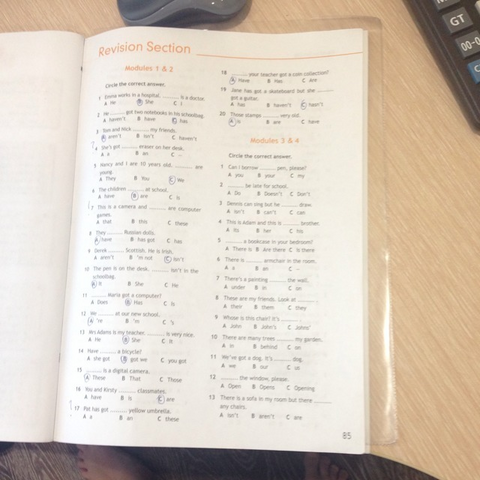 Revision Section
Modules 1 & 2
Circle the correct answer.
1 Emma works in a hospital. ........ is a doctor.
A He B She C I
2 He ........ got two notebooks in his schoolbag.
A haven't B have C has
3 Tom and Nick ........ my friends.
A aren't B isn't C haven't
4 She's got ........ eraser on her desk.
A a B an C –
5 Nancy and I are 10 years old. ........ are
young.
A They B You C We
6 The children ........ at school.
A have B are C is
7 This is a camera and ........ are computer
games.
A that B this C these
8 They ........ Russian dolls.
A have B has got C has
9 Derek ........ Scottish. He is Irish.
A aren't B 'm not C isn't
10 The pen is on the desk. ........ isn't in the
schoolbag.
A It B She C He
11 ........ Maria got a computer?
A Does B Has C Is
12 He ........ at our new school.
A 're B 'm C 's
13 Mrs Adams is my teacher. ........ is very nice.
A He B She C It
14 Have ........ a bicycle?
A she got B got we C you got
15 ........ is a digital camera.
A These B That C Those
16 You and Kirsty ........ classmates.
A have B is C are
17 Pat has got ........ yellow umbrella.
A a B an C these
18 ........ your teacher got a coin collection?
A Have B Has C Are
19 Jane has got a skateboard but she ........
got a guitar.
A has B haven't C hasn't
20 Those stamps ........ very old.
A is B are C have
Modules 3 & 4
Circle the correct answer.
1 Can I borrow ........ pen, please?
A you B your C my
2 ........ be late for school.
A Do B Doesn't C Don't
3 Dennis can sing but he ........ draw.
A isn't B can't C can
4 This is Adam and this is ........ brother.
A its B her C his
5 ........ a bookcase in your bedroom?
A There is B Are there C Is there
6 There is ........ armchair in the room.
A a B an C –
7 There's a painting ........ the wall.
A under B in C on
8 These are my friends. Look at ........
A their B them C they
9 Whose is this chair? It's ........
A John B John's C Johns'
10 There are many trees ........ my garden.
A in B behind C on
11 We've got a dog. It's ........ dog.
A we B our C us
12 ........ the window, please.
A Open B Opens C Opening
13 There is a sofa in my room but there ........
any chairs.
A isn't B aren't C are
85
GT
00-0